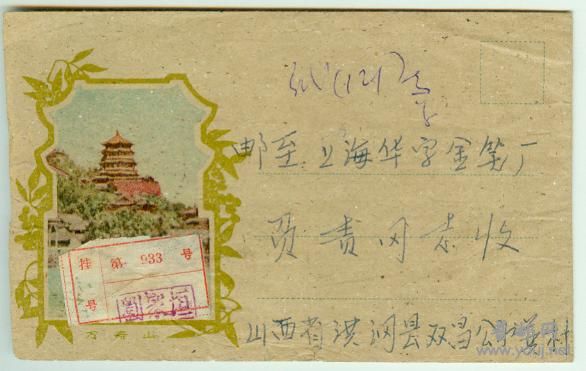 (121)
邮至上海华孚金笔厂
负责同志收
山西省洪洞县双昌公社
挂 第 933 号
号
万寿山
www.youj.net